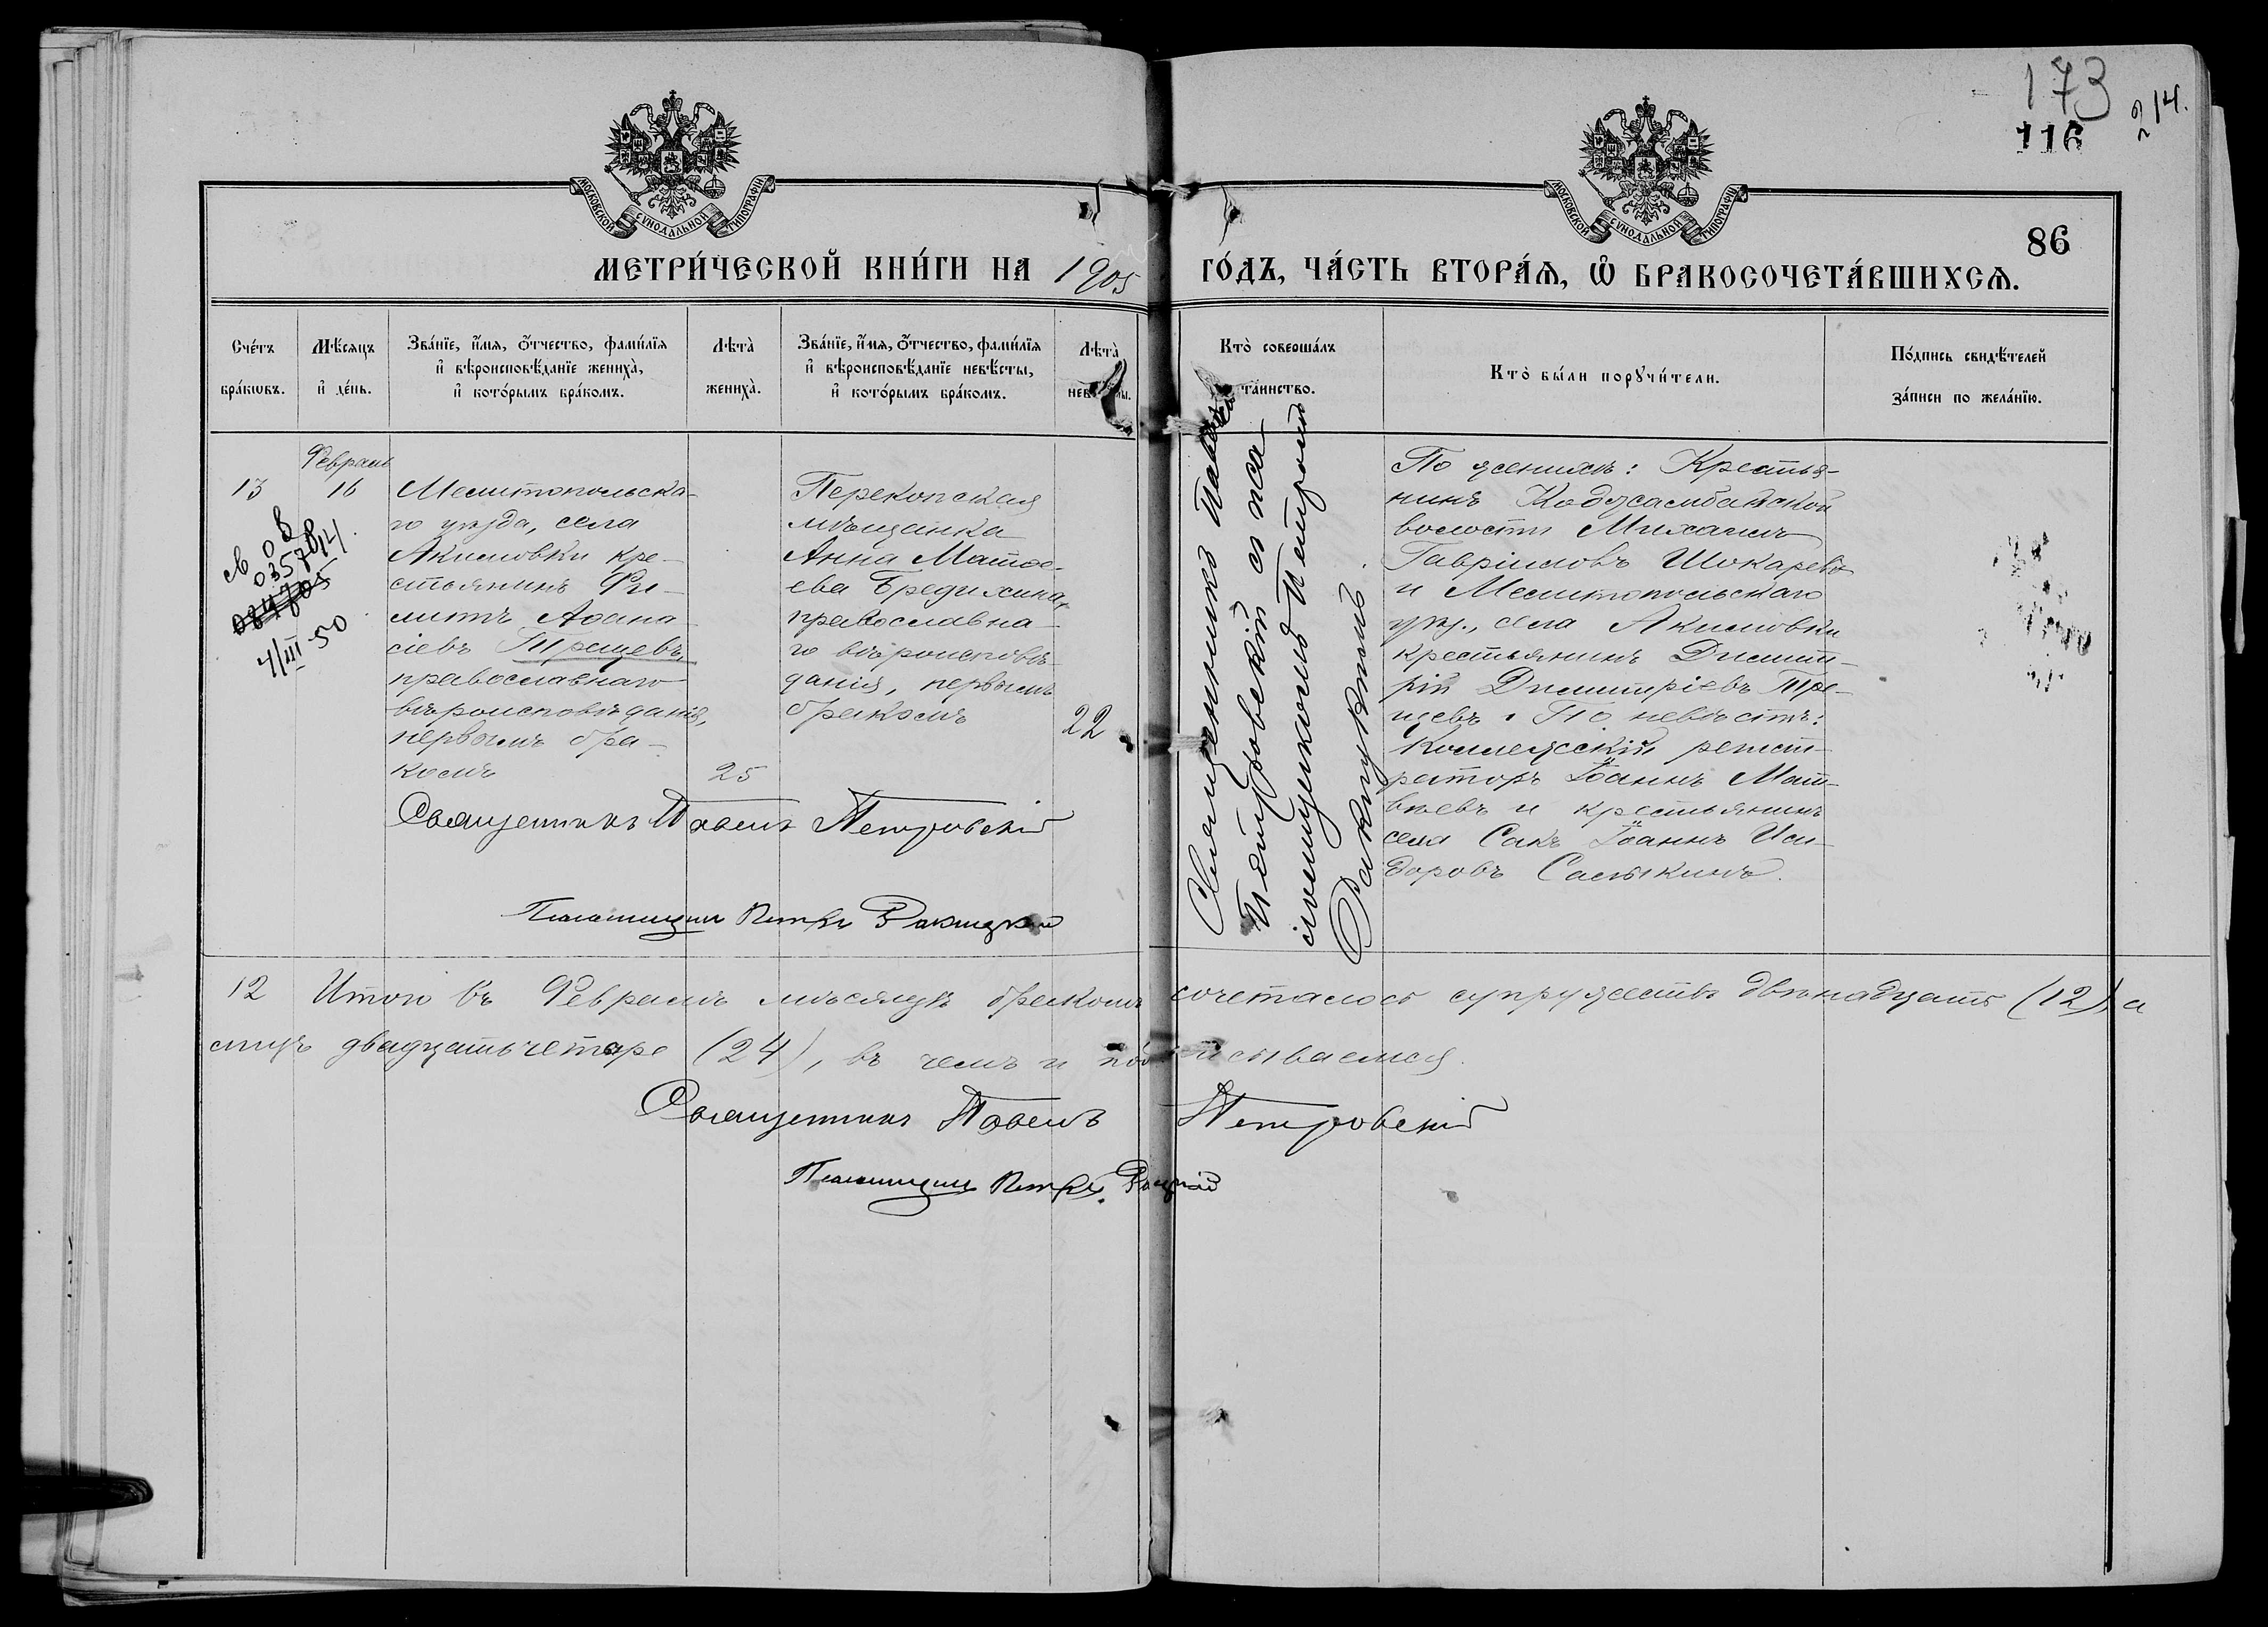 173
214.
116
МОСКОВСКОЙ СУНОДАЛЬНОЙ ТИПОГРАФІИ
МОСКОВСКОЙ СУНОДАЛЬНОЙ ТИПОГРАФІИ
86
МЕТРИ́ЧЕСКОЙ КНИ́ГИ НА 1905 ГО́ДЪ, ЧА́СТЬ ВТОРА́Ѧ, Ѿ БРАКОСОЧЕТА́ВШИХСѦ.
Сче́тъ бра́кѡвъ.
Мѣ́сѧцъ и҆ де́нь.
Зва́нїе, и҆́мѧ, ѻ҆́тчество, фами́лїѧ и҆ вѣроисповѣ́данїе жениха̀, и҆ кото́рымъ бра́комъ.
Лѣта̀ жениха̀.
Зва́нїе, и҆́мѧ, ѻ҆́тчество, фами́лїѧ и҆ вѣроисповѣ́данїе невѣ́сты, и҆ кото́рымъ бра́комъ.
Лѣта̀
Кто̀ соверша́лъ та́инство.
Кто̀ бы́ли порꙋчи́тели.
По́дпись свидѣ́телей за́писи по жела́нїю.
13
Февраль
16
св 08
03578
4/III-50
Мелитопольска-
го уѣзда, села
Акимовки кре-
стьянинъ Фи-
липъ Аѳана-
сіевъ Трещевъ,
православнаго
вѣроисповѣданія,
первымъ бра-
комъ
25
Перекопская
мѣщанка
Анна Матѳе-
ева Бредихина,
православна-
го вѣроисповѣ-
данія, первымъ
бракомъ
22
Священникъ Павелъ
Петровскій съ пса-
ломщикомъ Петромъ
Ракицкимъ.
По женихѣ: Крестья-
нинъ Коджамбакской
волости Михаилъ
Гавріиловъ Шокаревъ
и Мелитопольскаго
уѣз., села Акимовки
крестьянинъ Димит-
рій Димитріевъ Тре-
щевъ. По невѣстѣ:
Коллежскій регист-
раторъ Іоаннъ Мат-
вѣевъ и крестьянинъ
села Сакъ Іоаннъ Иси-
доровъ Салыкинъ.
Священникъ Павелъ Петровскій
Псаломщикъ Петръ Ракицкій
12 Итого въ Февралѣ мѣсяцѣ бракомъ сочеталось супружествъ двѣнадцать (12), а
лицъ двадцать четыре (24), въ чемъ и подписываемся.
Священникъ Павелъ Петровскій
Псаломщикъ Петръ Ракицкій